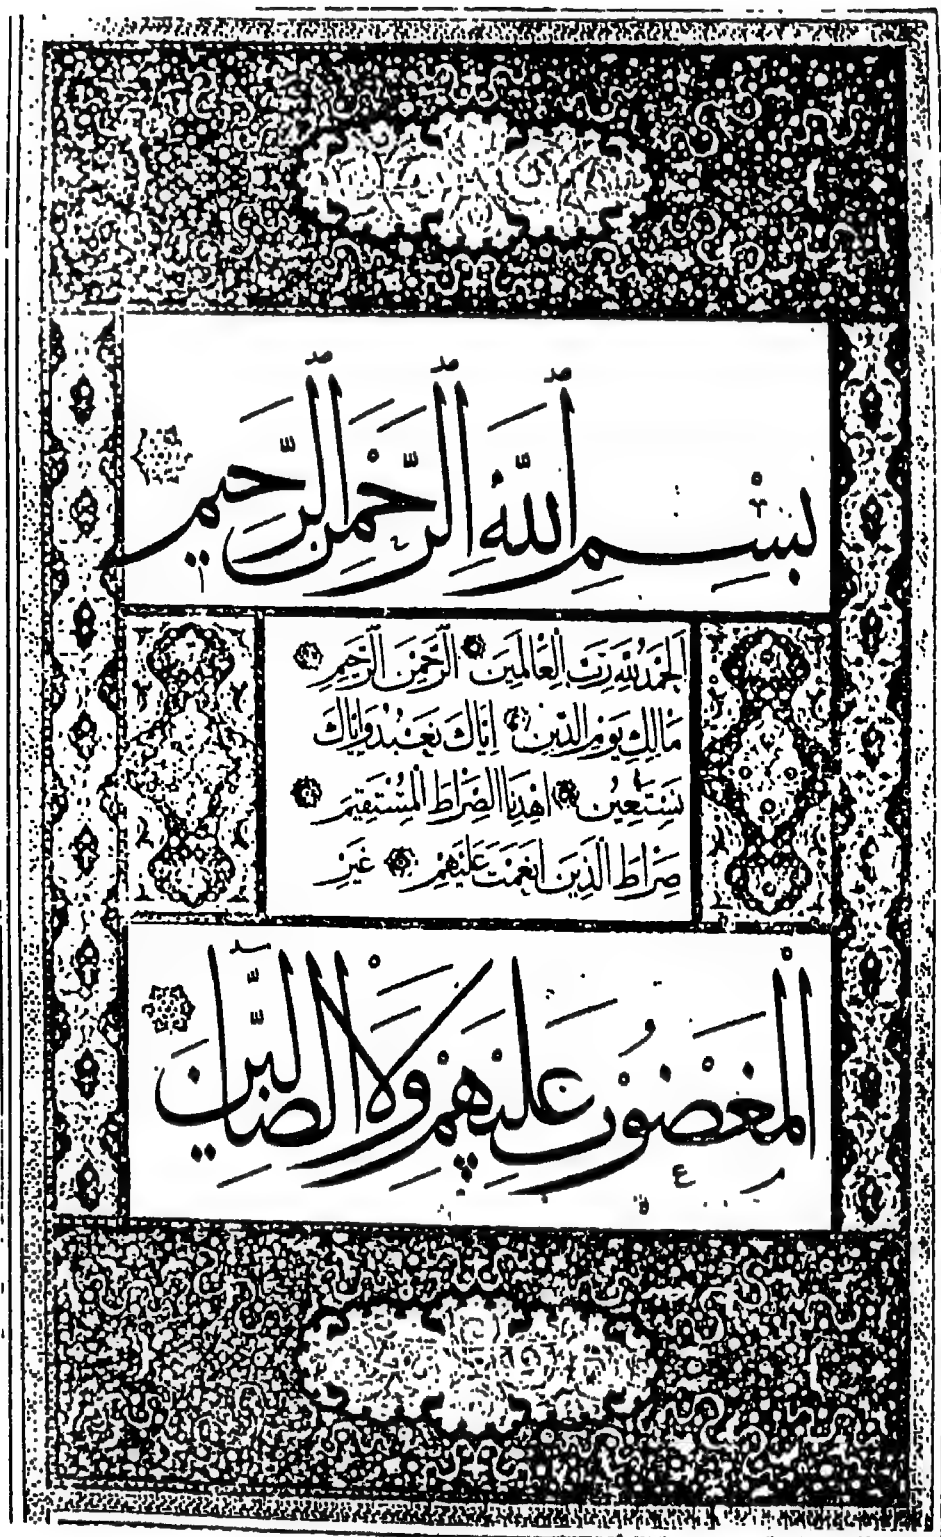 بِسْمِ اللَّهِ الرَّحْمٰنِ الرَّحِيمِ
اَلْحَمْدُ لِلَّهِ رَبِّ الْعَالَمِينَ الرَّحْمٰنِ الرَّحِيمِ
مَالِكِ يَوْمِ الدِّينِ اِيَّاكَ نَعْبُدُ وَاِيَّاكَ
نَسْتَعِينُ اِهْدِنَا الصِّرَاطَ الْمُسْتَقِيمَ
صِرَاطَ الَّذِينَ اَنْعَمْتَ عَلَيْهِمْ غَيْرِ
الْمَغْضُوبِ عَلَيْهِمْ وَلَا الضَّالِّينَ